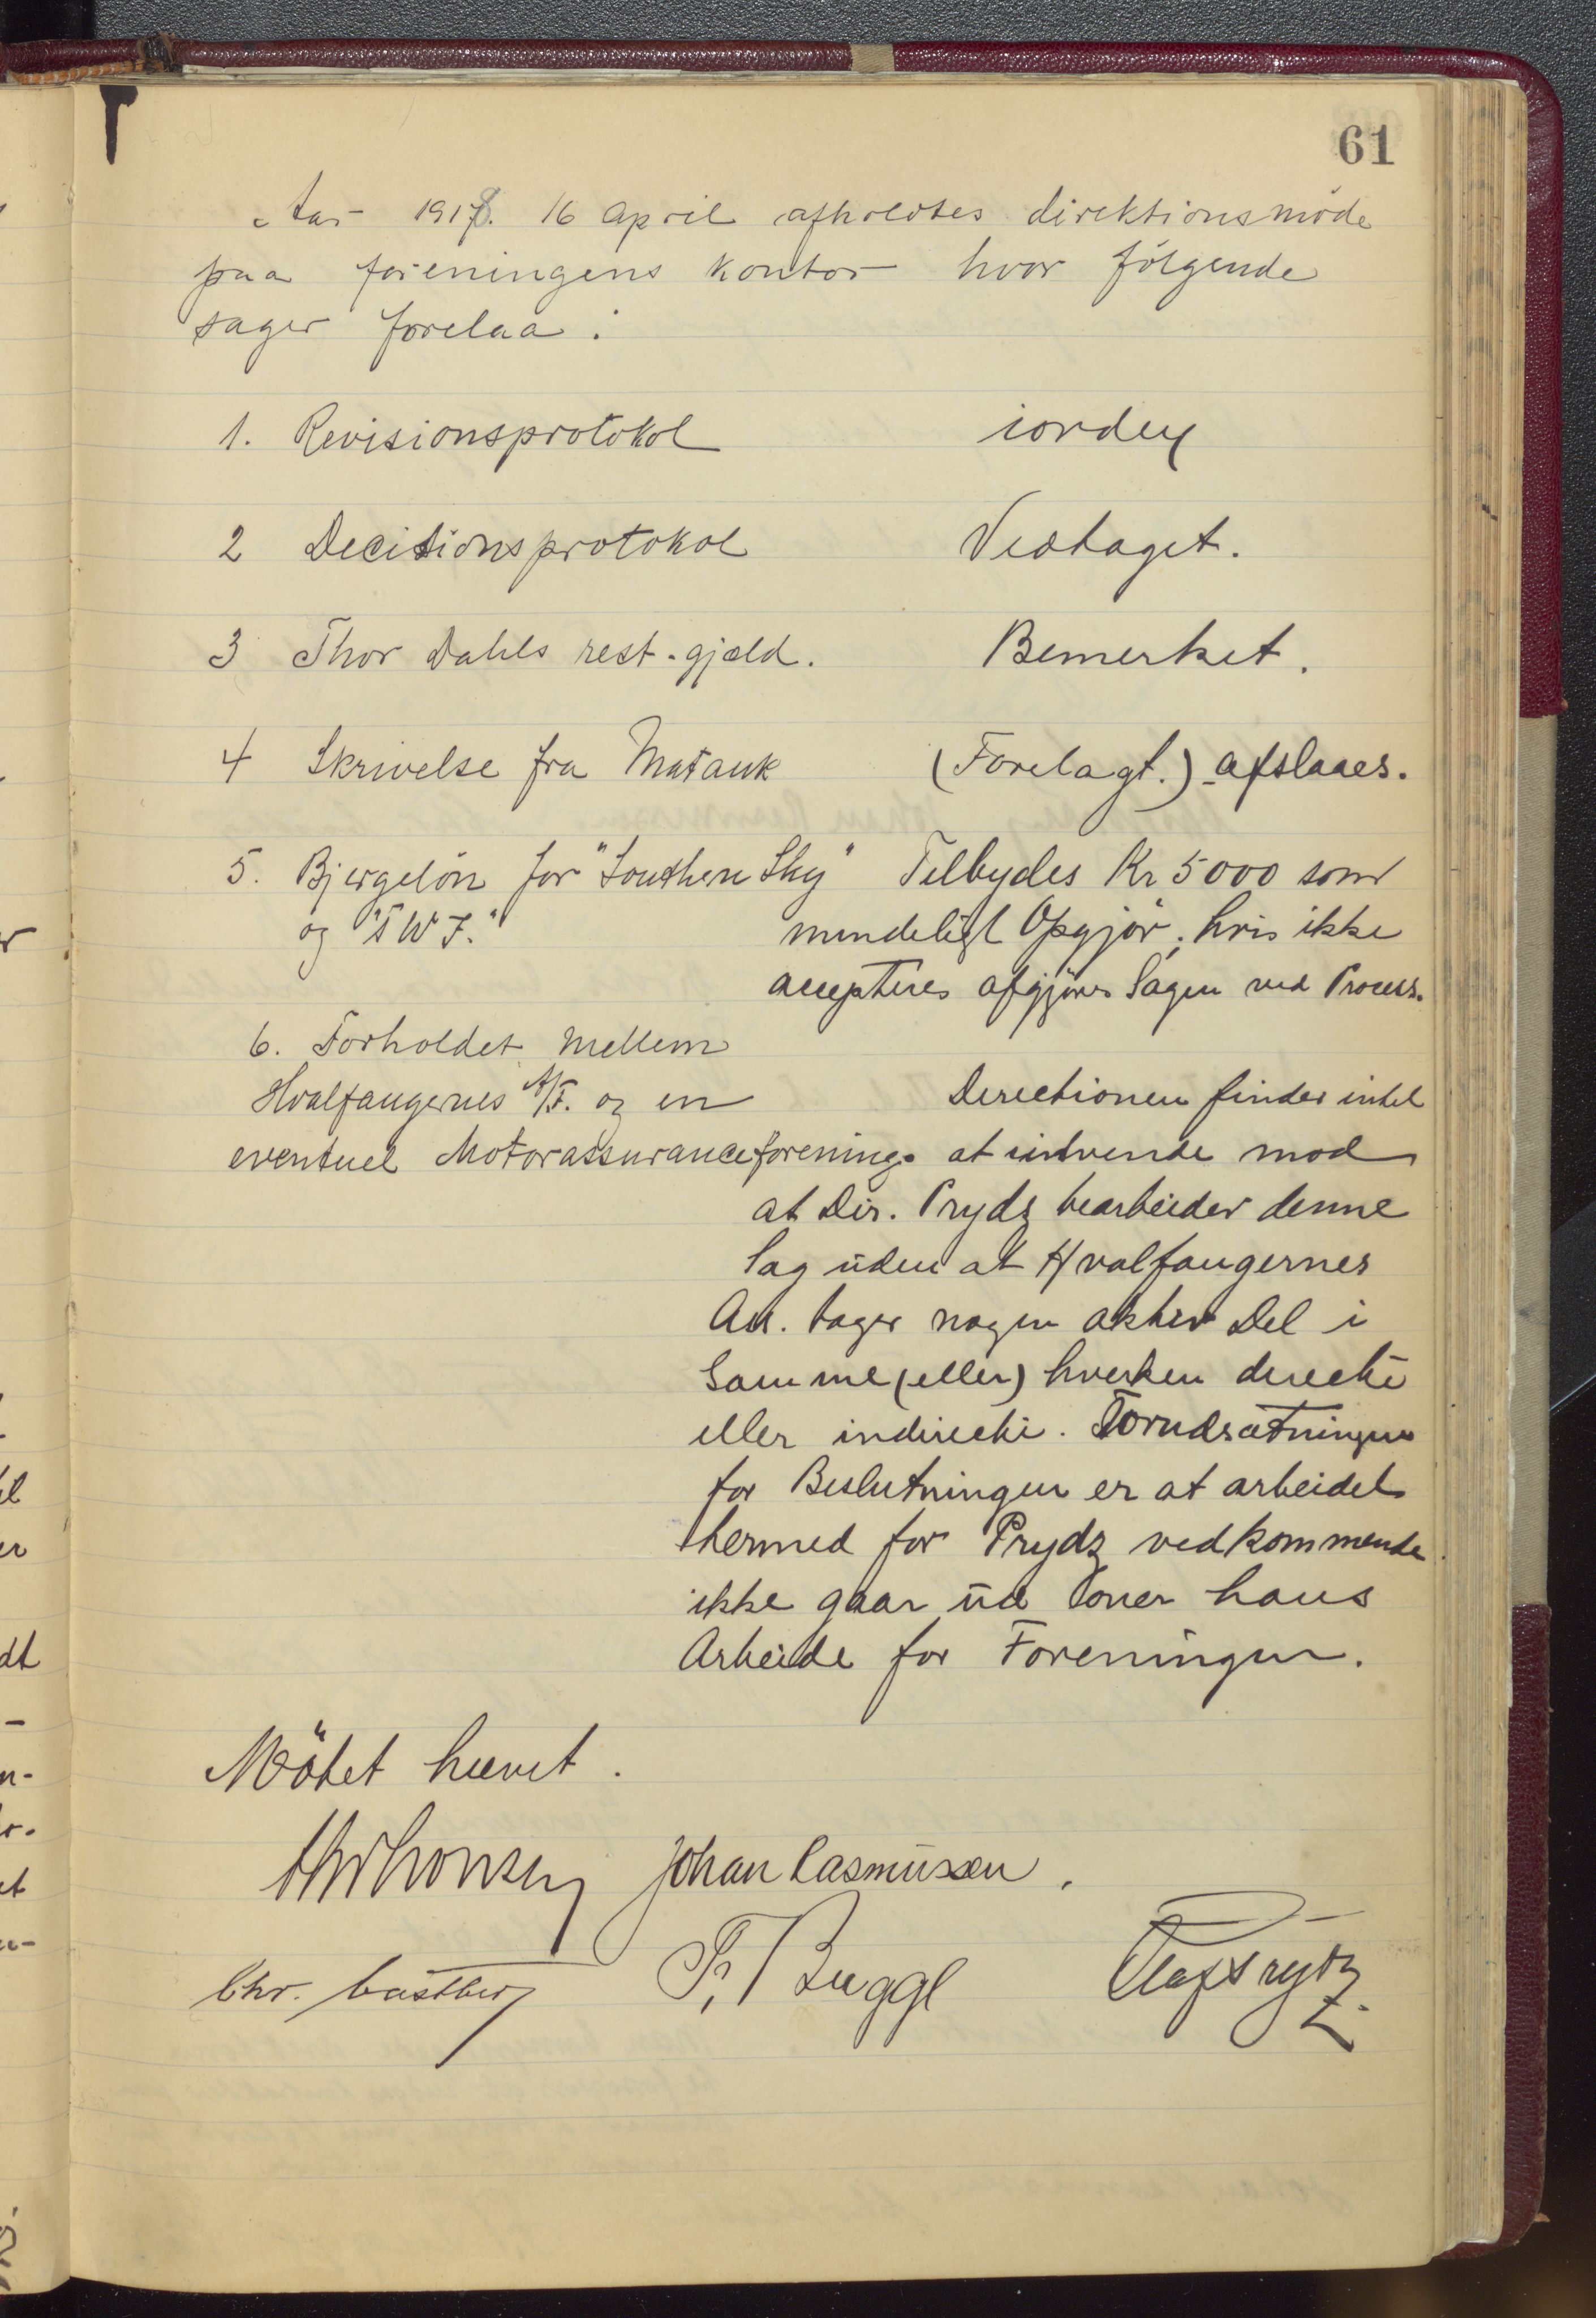 61
Aar 1918. 16 April afholdtes direktionsmöde
paa foreningens kontor hvor fölgende
sager forelaa:
1. Revisionsprotokol iorden
2 Decisionsprotokol Vedtaget.
3 Thor Dahls rest-gjæld. Bemerket.
4 Skrivelse fra Matauk (Forelagt.) afslaaes.
5. Bjergelön for "Southern Sky" Tilbydes Kr 5000 som
og "T W F." mindeligt Opgjör; hvis ikke
accepteres afgjöres Sagen ved Process.
6. Forholdet mellem
Hvalfangernes A/F. og en Directionen finder intet
eventuel Motorassuranceforening. at indvende mod
at Dir. Prydz bearbeider denne
Sag uden at Hvalfangernes
Ass. tager nogen aktiv Del i
Samme (eller) hverken directe
eller indirecte. Forudsætningen
for Beslutningen er at arbeidet
hermed for Prydz vedkommende
ikke gaar ud over hans
Arbeide for Foreningen.
Mötet hævet.
Johan Rasmussen.
Chr. Castberg Fr. Bugge Olaf Prydz